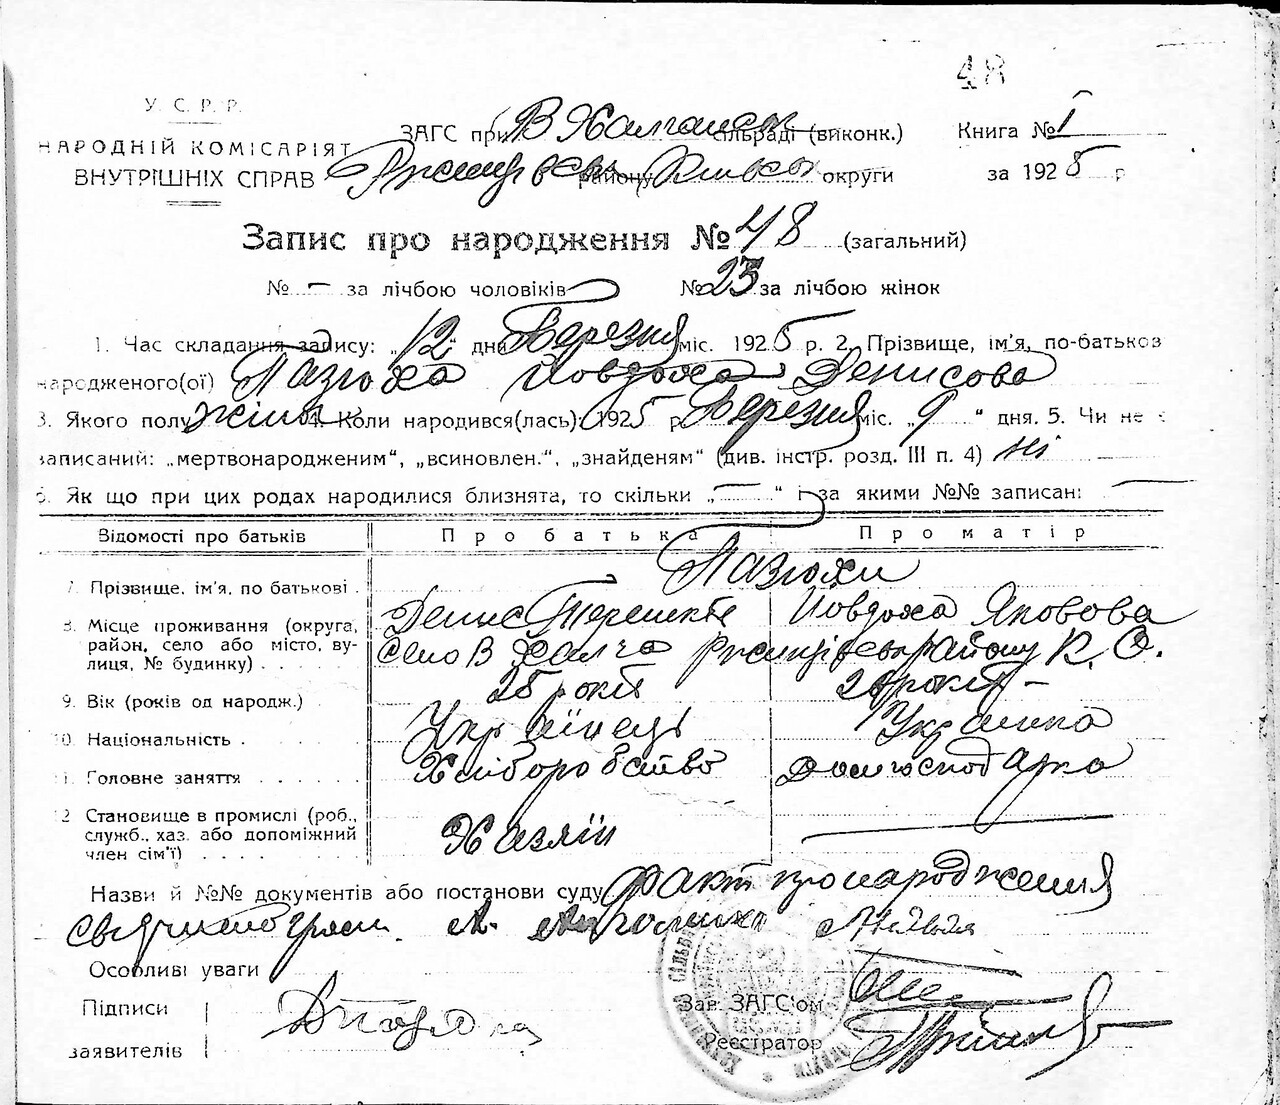 48
У. С. Р. Р.
НАРОДНІЙ КОМІСАРІЯТ
ВНУТРІШНІХ СПРАВ
ЗАГС при В Халчанск сільраді (виконк.)
району округи
Книга № I
за 1925 р
Запис про народження № 48 (загальний)
№ – за лічбою чоловіків № 23 за лічбою жінок
1. Час складання запису: „12" дня Березня міс. 1925 р. 2. Прізвище, ім'я, по-батьков
народженого(ої) Пазюха Йовдоха Денисова
3. Якого полу жіноч 4. Коли народився(лась): 1925 р Березня міс. „9" дня. 5. Чи не є
записаний: „мертвонародженим", „всиновлен.", „знайденям" (див. інстр. розд. III п. 4) ні
6. Як що при цих родах народилися близнята, то скільки „—" і за якими №№ записані —
Відомості про батьків Про батька Про матір
7. Прізвище, ім'я, по батькові . Пазюхи
Денис Йовдоха Яковова
8. Місце проживання (округа, район, село або місто, вулиця, № будинку) . . . . село В Халча району К. О.
9. Вік (років од народж.) . 25 років 26 років –
10. Національність . . . . . Українець Українка
11. Головне заняття . . . . . . Хліборобство Домгосподарка
12 Становище в промислі (роб., служб., хаз. або допоміжний член сім'ї) . . . . . Хазяїн —
Назви й №№ документів або постанови суду факт про народження
Особливі уваги
Підписи
заявителів
Зав. ЗАГС'ом
Реєстратор